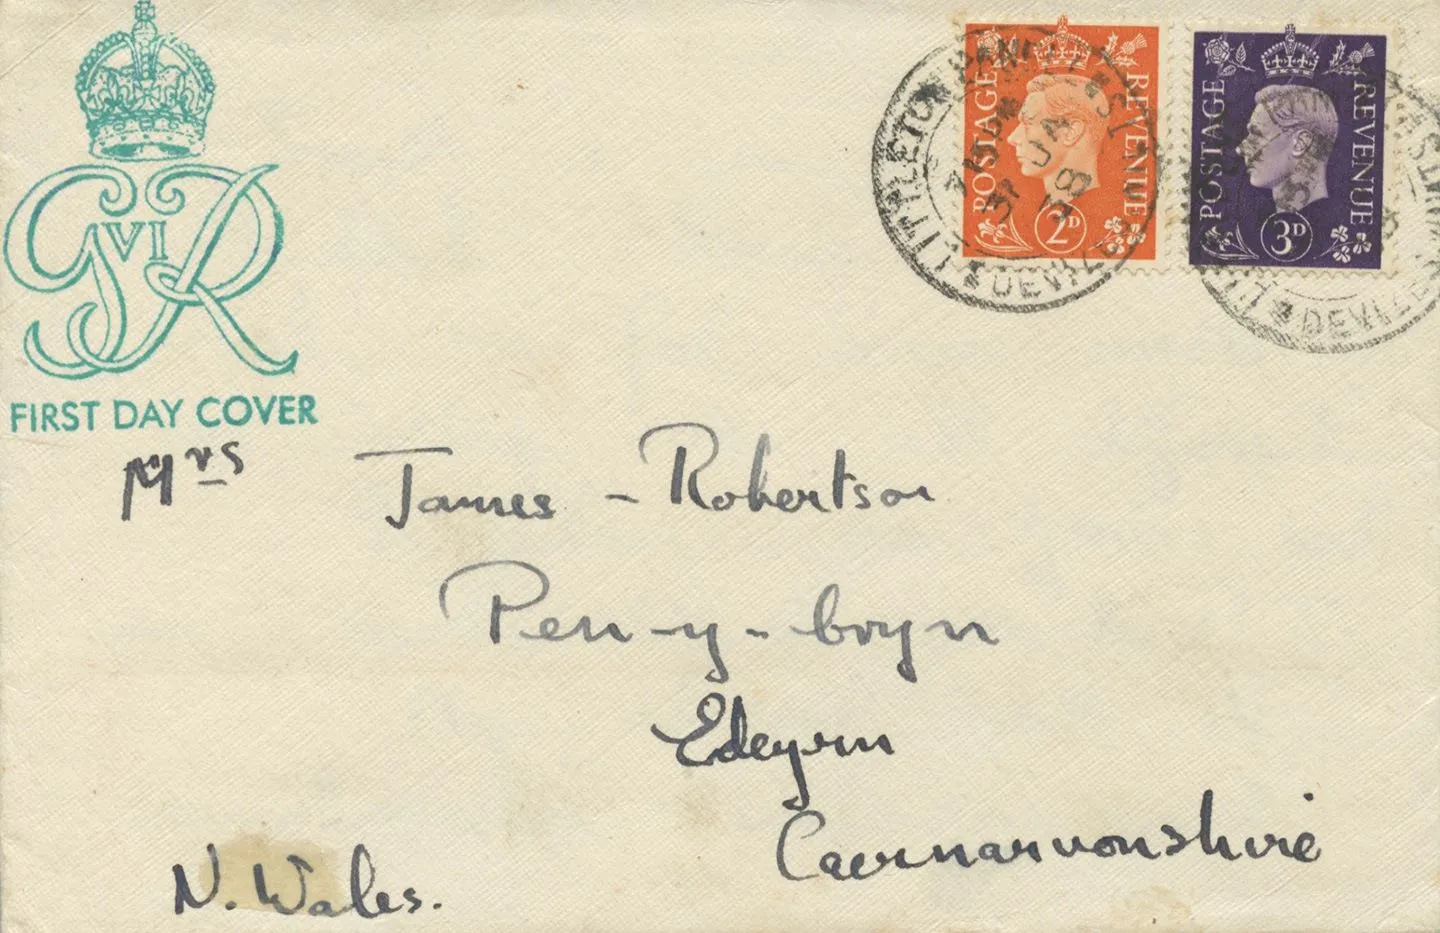 G VI R
FIRST DAY COVER
POSTAGE REVENUE
2D
POSTAGE REVENUE
3D
LITTLETON PANELL ST
7 15 PM
31 JA
38
DEVIZES
DEVIZES
Mrs James - Robertson
Pen-y-bryn
Edeyrn
Caernarvonshire
N. Wales.